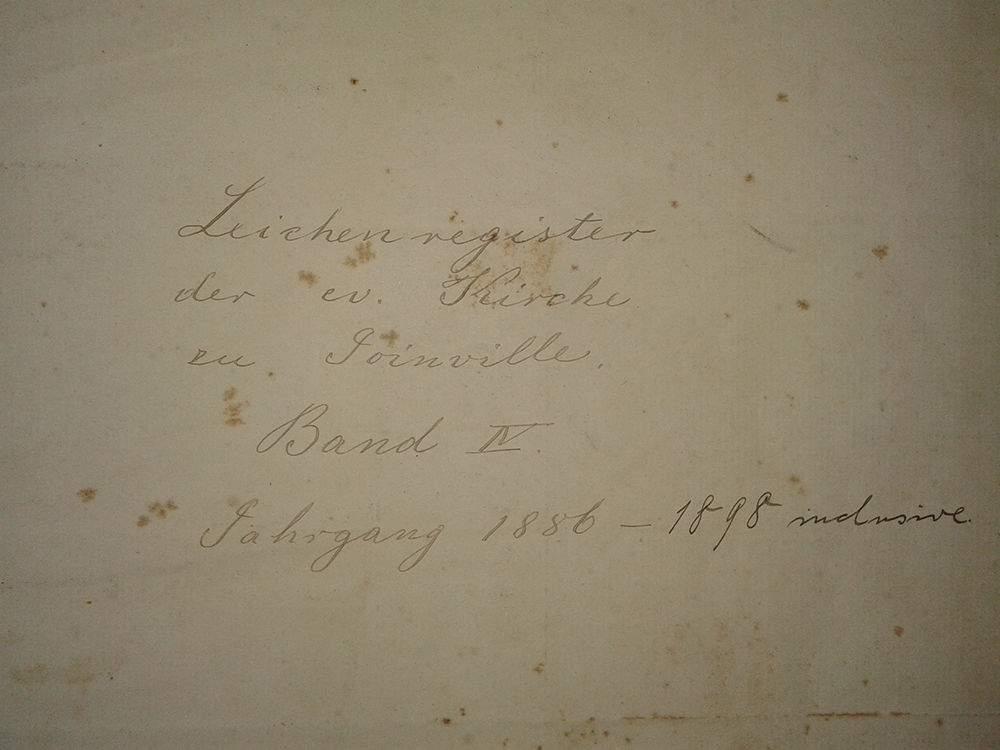 Leichenregister
der ev. Kirche
zu Joinville.
Band IV.
Jahrgang 1886 – 1898 inclusive.